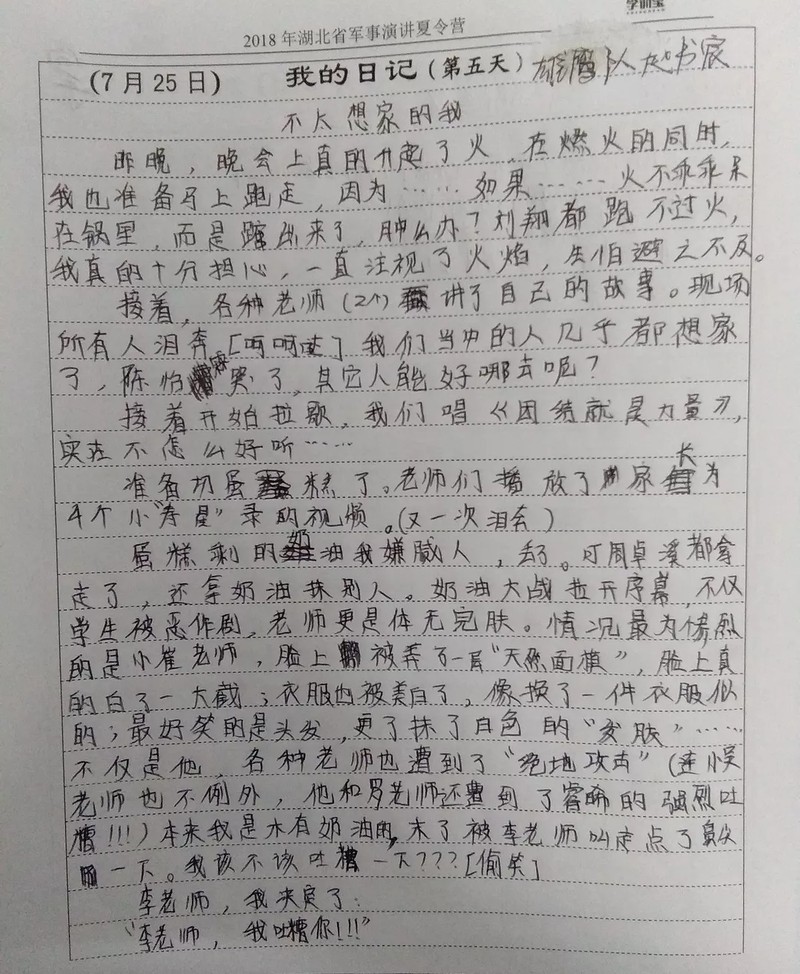 学训宝
2018年湖北省军事演讲夏令营
(7月25日) 我的日记(第五天) 雄鹰队 书宸
不太想家的我
昨晚，晚会上真的升起了火，在燃火的同时，
我也准备马上跑走，因为……如果……火不乖乖呆
在锅里，而是蹿出来了，肿么办？刘翔都跑不过火，
我真的十分担心，一直注视了火焰，生怕避之不及。
接着，各种老师(2个)讲了自己的故事。现场
所有人泪奔[呵呵哒]我们当中的人几乎都想家
了，陈怡霖哭了，其它人能好哪去呢？
接着开始拉歌，我们唱《团结就是力量》，
实在不怎么好听……
准备切蛋糕了。老师们播放了家长为
4个小"寿星"录的视频。(又一次泪奔)
蛋糕剩的奶油我嫌腻人，丢了。可周卓溪都拿
走了，还拿奶油抹别人。奶油大战拉开序幕，不仅
学生被恶作剧，老师更是体无完肤。情况最为惨烈
的是小崔老师，脸上被弄了一层"天然面膜"，脸上真
的白了一大截；衣服也被美白了，像换了一件衣服似
的；最好笑的是头发，更了抹了白色的"发肤"……
不仅是他，各种老师也遭到了"绝地攻击"(连小吴
老师也不例外，他和罗老师还遭到了睿晞的强烈吐
槽!!!)本来我是木有奶油的，末了被李老师叫走点了鼻尖
一下。我该不该吐槽一下???[偷笑]
李老师，我决定了：
"李老师，我吐槽你!!!"